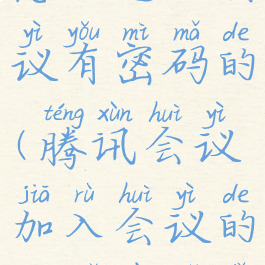 yì yǒu mì mǎ de
议有密码的
téng xùn huì yì
(腾讯会议
jiā rù huì yì de
加入会议的